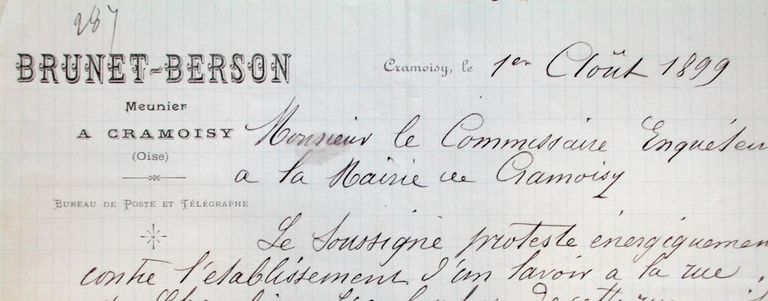 287
BRUNET-BERSON
Meunier
A CRAMOISY
(Oise)
BUREAU DE POSTE ET TÉLÉGRAPHE
Cramoisy, le 1er Août 1899
Monsieur le Commissaire Enquêteu
a la Mairie de Cramoisy
Le Soussigné proteste énergiquemen
contre l'établissement d'un lavoir a la rue